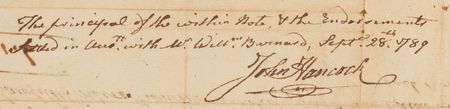 The principal of the within Note, & the Endorsements
settled in Accot. with Mr. Willm. Burnard, Sepr. 28th. 1789
John Hancock